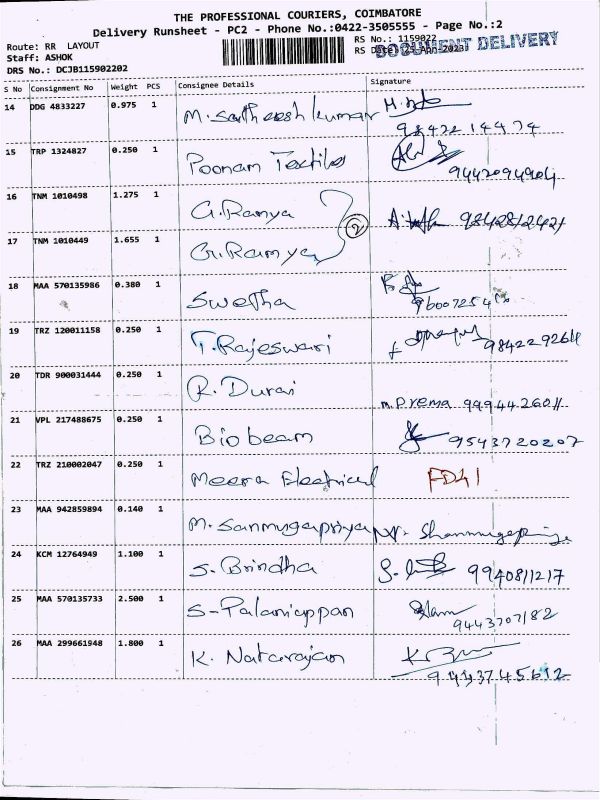 THE PROFESSIONAL COURIERS, COIMBATORE
Delivery Runsheet - PC2 - Phone No.:0422-3505555 - Page No.:2
Route: RR LAYOUT
RS No.: 1159022
Staff: ASHOK
RS Date: 25-Apr-2023
DOCUMENT DELIVERY
DRS No.: DCJB115902202
S No Consignment No Weight PCS Consignee Details Signature
14 DDG 4833227 0.975 1 M. Satheesh kumar
98422 14474
15 TRP 1324827 0.250 1 Poonam Textiles
9442094904
16 TNM 1010498 1.275 1 G. Ramya
2 9842812421
17 TNM 1010449 1.655 1 G. Ramya
18 MAA 570135986 0.380 1 Swetha
19 TRZ 120011158 0.250 1 T. Rajeswari
9842229264
20 TDR 900031444 0.250 1 R. Durai
m. Prema 9994426011
21 VPL 217488675 0.250 1 Biobeam 9543720207
22 TRZ 210002047 0.250 1 Meera Electrical
23 MAA 942859894 0.140 1 M. Sanmugapriya
24 KCM 12764949 1.100 1 S. Brindha 9940811217
25 MAA 570135733 2.500 1 S-Palaniappan
9443707182
26 MAA 299661948 1.800 1 K. Natarajan
9443745612